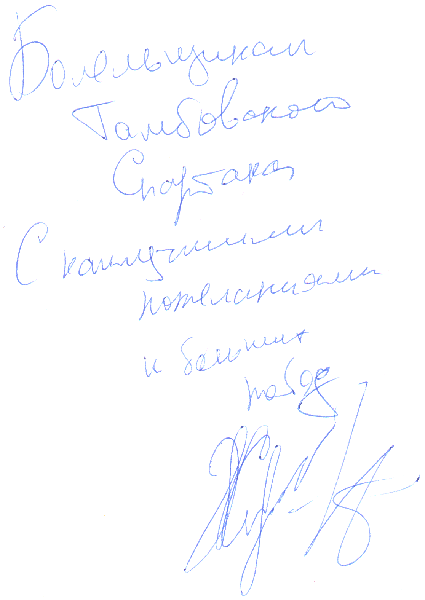 Болельщикам
Тамбовского
Спартака
С наилучшими
пожеланиями
и больших
побед